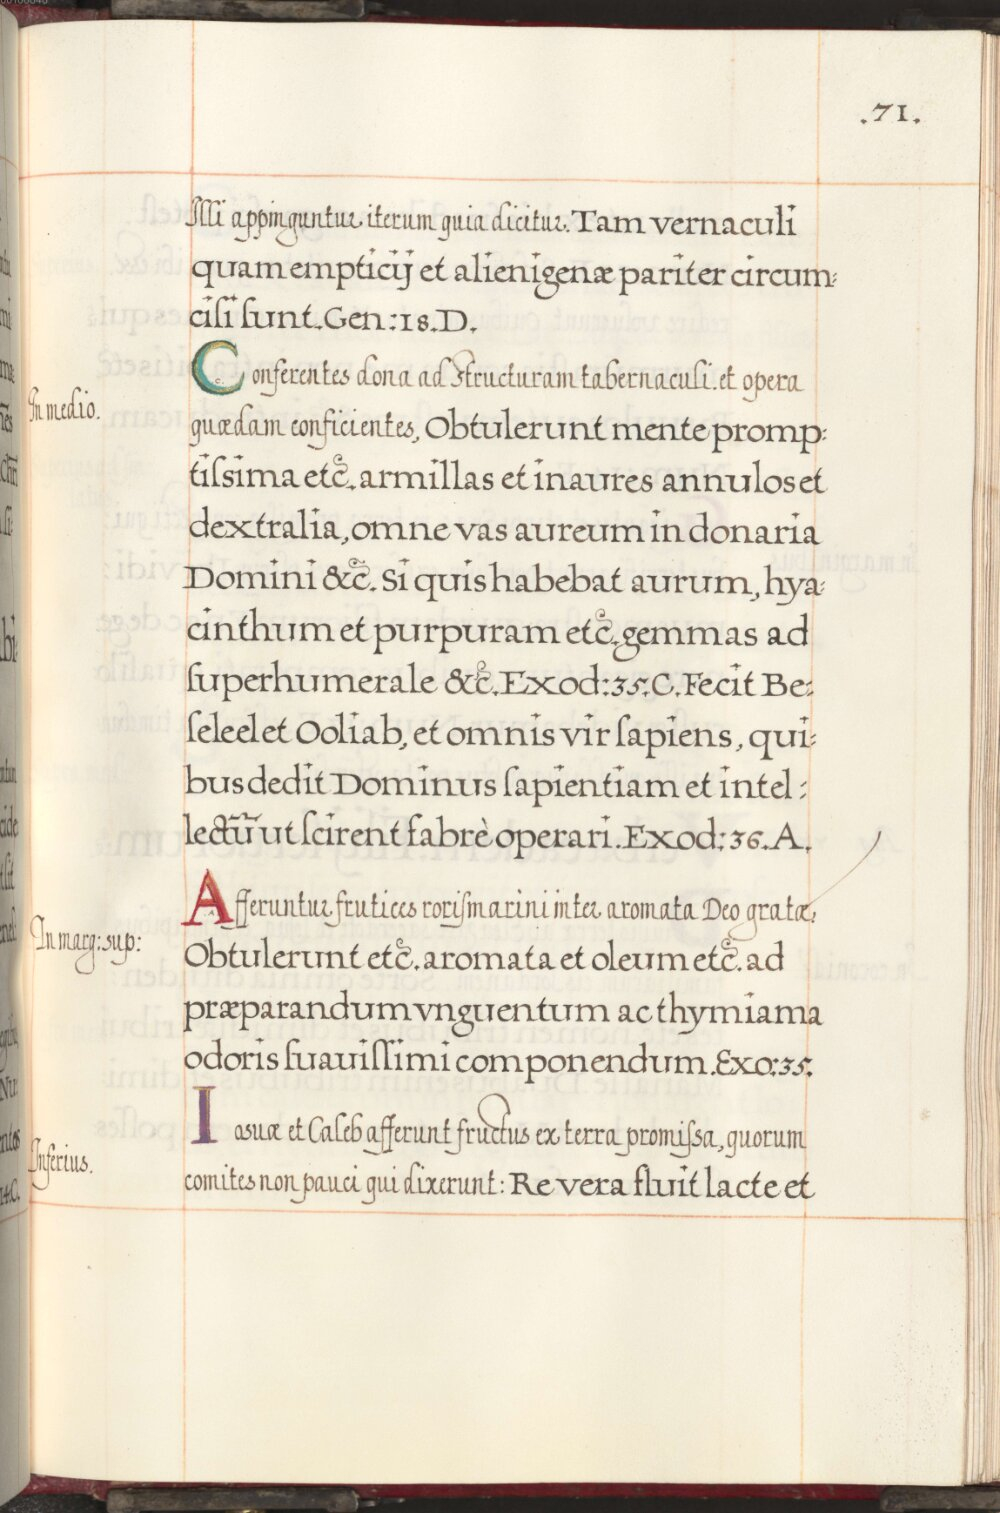 .71.
Illi appinguntur iterum quia dicitur. Tam vernaculi
quam empticij et alienigenæ pariter circum:
cisi sunt. Gen: 18. D.
In medio.
Conferentes dona ad structuram tabernaculi. et opera
quædam conficientes, Obtulerunt mente promp:
tissima etc̃. armillas et inaures annulos et
dextralia, omne vas aureum in donaria
Domini &c̃. Si quis habebat aurum, hya:
cinthum et purpuram etc̃. gemmas ad
superhumerale &c̃. Exod: 35. C. Fecit Be:
seleel et Ooliab, et omnis vir sapiens, qui:
bus dedit Dominus sapientiam et intel:
lectũ ut scirent fabrè operari. Exod: 36. A.
In marg: sup:
Afferuntur frutices rorismarini inter aromata Deo gratæ,
Obtulerunt etc̃. aromata et oleum etc̃. ad
præparandum vnguentum ac thymiama
odoris suauissimi componendum. Exo: 35.
Inferius.
Iosuæ et Caleb afferunt fructus ex terra promissa, quorum
comites non pauci qui dixerunt: Re vera fluit lacte et